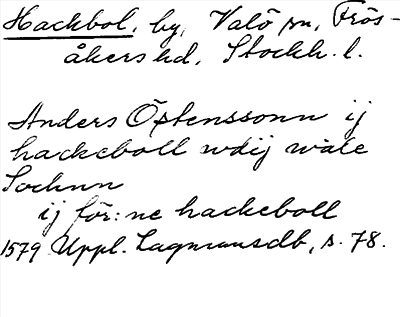 Hackbol, by, Valö sn, Frös-
åkers hd, Stockh. l.
Anders Östenssonn ij
hackeboll wdij wåle
Sochnn
ij för:ne hackeboll
1579 Uppl. Lagmansdb, s. 78.